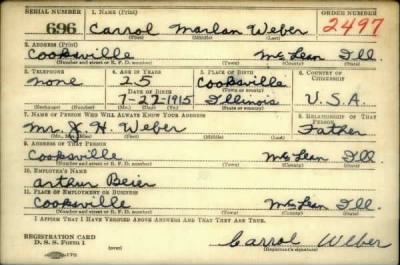 SERIAL NUMBER 1. NAME (Print) ORDER NUMBER
696 Carrol Marlan Weber 2497
(First) (Middle) (Last)
2. ADDRESS (Print)
Cooksville McLean Ill.
(Number and street or R. F. D. number) (Town) (County) (State)
3. TELEPHONE 4. AGE IN YEARS 5. PLACE OF BIRTH 6. COUNTRY OF CITIZENSHIP
none 25 Cooksville
DATE OF BIRTH (Town or county)
7-27-1915 Illinois U.S.A.
(Exchange) (Number) (Mo.) (Day) (Yr.) (State or country)
7. NAME OF PERSON WHO WILL ALWAYS KNOW YOUR ADDRESS 8. RELATIONSHIP OF THAT PERSON
Mr. J H. Weber Father
(Mr., Mrs., Miss) (First) (Middle) (Last)
9. ADDRESS OF THAT PERSON
Cooksville McLean Ill.
(Number and street or R. F. D. number) (Town) (County) (State)
10. EMPLOYER'S NAME
Arthur Beier
11. PLACE OF EMPLOYMENT OR BUSINESS
Cooksville McLean Ill.
(Number and street or R. F. D. number) (Town) (County) (State)
I AFFIRM THAT I HAVE VERIFIED ABOVE ANSWERS AND THAT THEY ARE TRUE.
REGISTRATION CARD
D. S. S. Form 1 (over) Carrol Weber
(Registrant's signature)